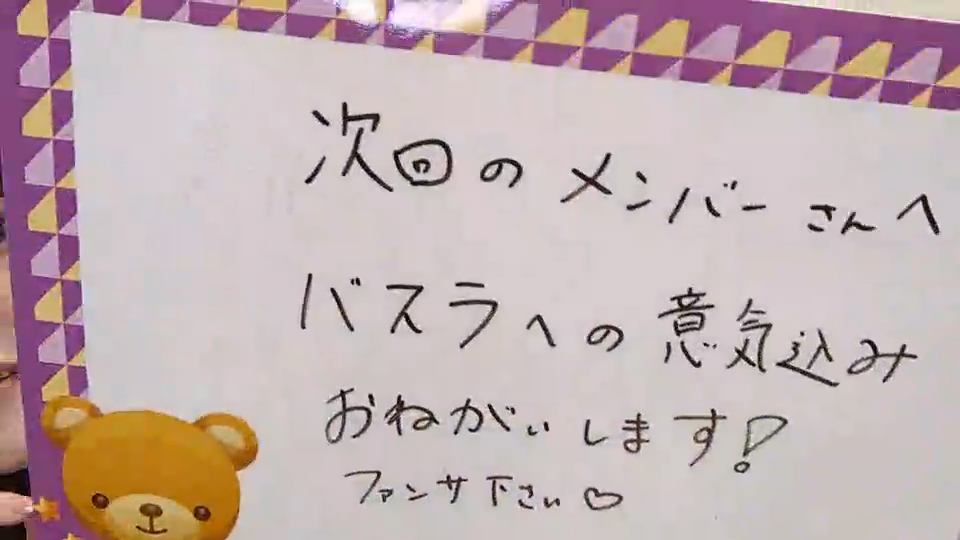 次回のメンバーさんへ
バスラへの意気込み
おねがいします!
ファンサ下さい♡